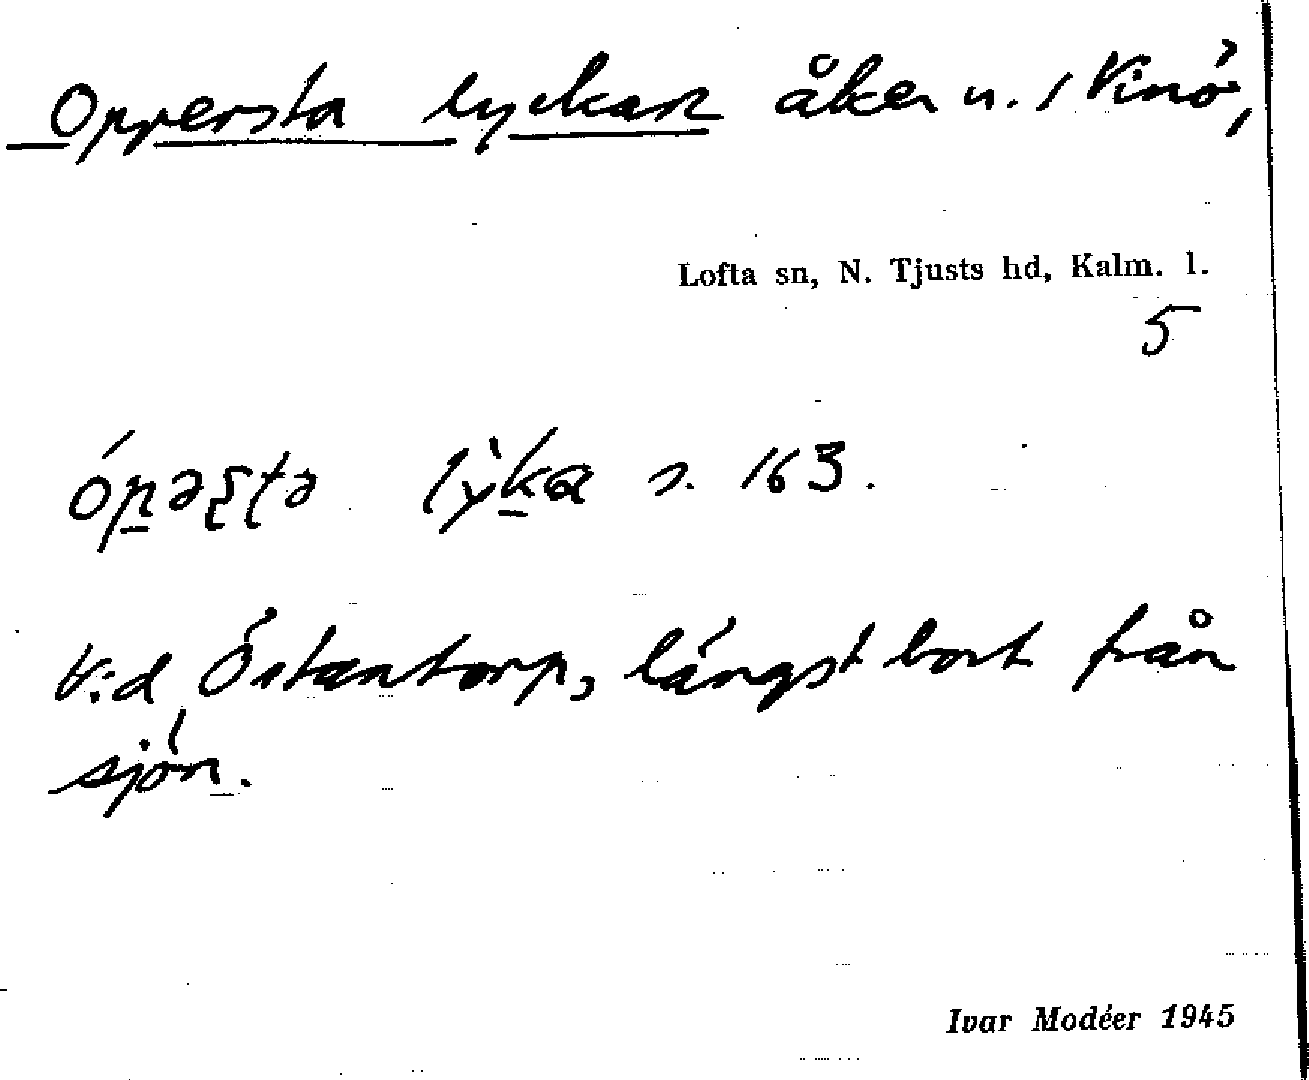 Oppersta lyckan åker u. 1 Vinö,
Lofta sn, N. Tjusts hd, Kalm. l.
5
s. 163.
Vid Östantorp, längst bort från
sjön.
Ivar Modéer 1945